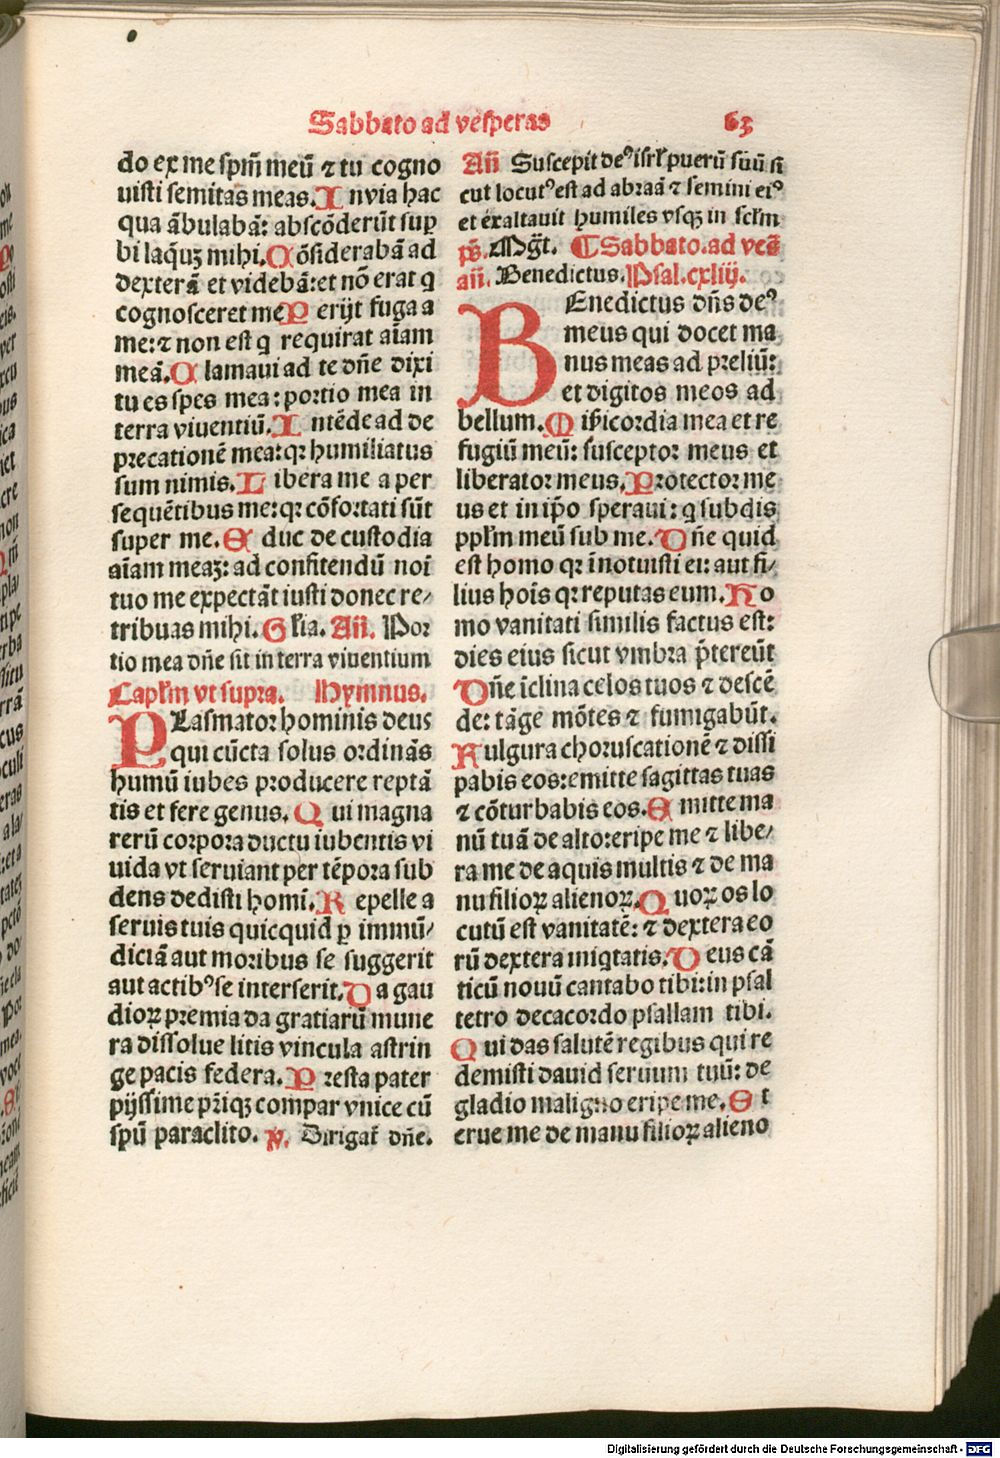 Sabbato ad vesperas 63
do ex me spm̄ meū ⁊ tu cogno
uisti semitas meas. In via hac
qua ābulabā: abscōderūt suꝑ
bi laq̄uꝫ mihi. Cōsiderabā ad
dexterā et videbā: et nō erat q
cognosceret me Perijt fuga a
me: ⁊ non est q requirat aīam
meā. Clamaui ad te dn̄e dixi
tu es spes mea: portio mea in
terra viuentiū. Intēde ad de
precationē mea: qꝛ humiliatus
sum nimis. Libera me a per
sequētibus me: qꝛ cōfortati sūt
super me. Educ de custodia
aīam meaꝫ: ad confitendū noī
tuo me expectāt iusti donec re/
tribuas mihi. Glīa. Añ. Por
tio mea dn̄e sit in terra viuentium
Capłm vt supra. Hymnus.
PLasmator hominis deus
qui cūcta solus ordinās
humū iubes producere reptā
tis et fere genus. Qui magna
rerū corpora ductu iubentis vi
uida vt seruiant per tēpora sub
dens dedisti homī. Repelle a
seruis tuis quicquid ꝑ immū/
diciā aut moribus se suggerit
aut actibꝰ se interserit. Da gau
dioꝝ premia da gratiarū mune
ra dissolue litis vincula astrin
ge pacis federa. Presta pater
pijssime pr̄iqꝫ compar vnice cū
spū paraclito. ℣. Dirigat̄ dn̄e.
Añ Suscepit deꝰ isrł puerū suū si
cut locutꝰ est ad abraā ⁊ semini eiꝰ
et exaltauit humiles vsqꝫ in scłm
ps̄. Mḡt. ¶ Sabbato. ad ves̄
añ. Benedictus. Psal. cxliij.
BEnedictus dn̄s deꝰ
meus qui docet ma
nus meas ad preliū:
et digitos meos ad
bellum. Mīscordia mea et re
fugiū meū: susceptor meus et
liberator meus. Protector me
us et in ip̄o speraui: q subdis
ppłm meū sub me. Dn̄e quid
est homo qꝛ īnotuisti ei: aut fi/
lius hoīs qꝛ reputas eum. Ho
mo vanitati similis factus est:
dies eius sicut vmbra p̄tereūt
Dn̄e īclina celos tuos ⁊ descē
de: tāge mōtes ⁊ fumigabūt.
Fulgura choruscationē ⁊ dissi
pabis eos: emitte sagittas tuas
⁊ cōturbabis eos. Emitte ma
nū tuā de alto: eripe me ⁊ libe/
ra me de aquis multis ⁊ de ma
nu filioꝝ alienoꝝ. Quoꝝ os lo
cutū est vanitatē: ⁊ dextera eo
rū dextera iniqtatis. Deus cā
ticū nouū cantabo tibi: in psal
tetro decacordo psallam tibi.
Qui das salutē regibus qui re
demisti dauid seruum tuū: de
gladio maligno eripe me. Et
erue me de manu filioꝝ alieno
Digitalisierung gefördert durch die Deutsche Forschungsgemeinschaft - DFG